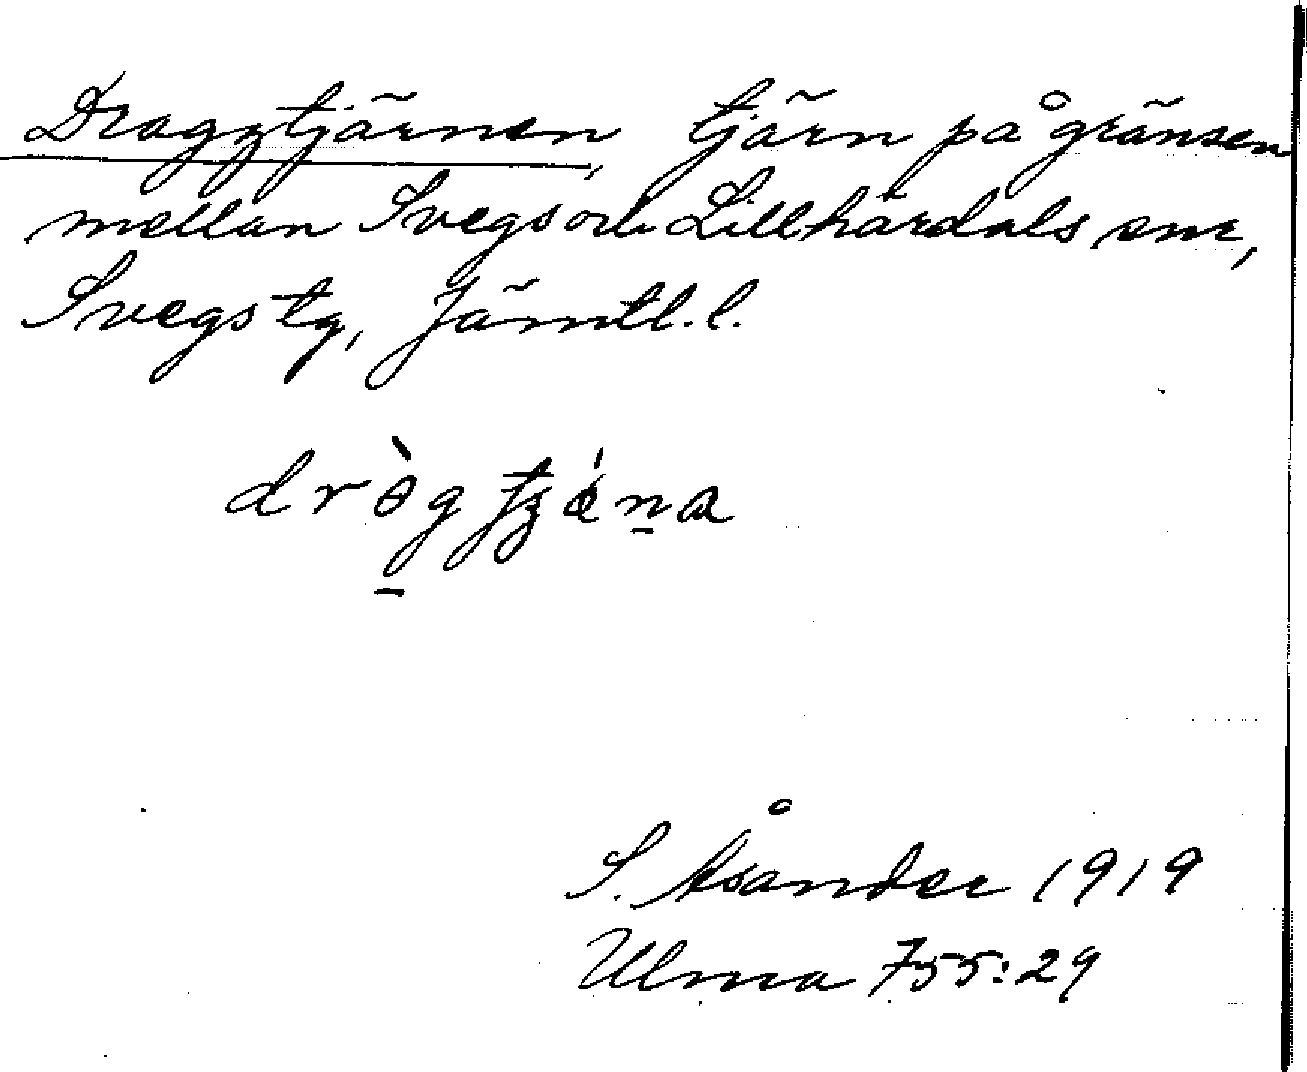 Draggtjärnen, tjärn på gränsen
mellan Svegs och Lillhärdals snr,
Svegs tg, Jämtl. l.
S. Åsander 1919
Ulma 755:29